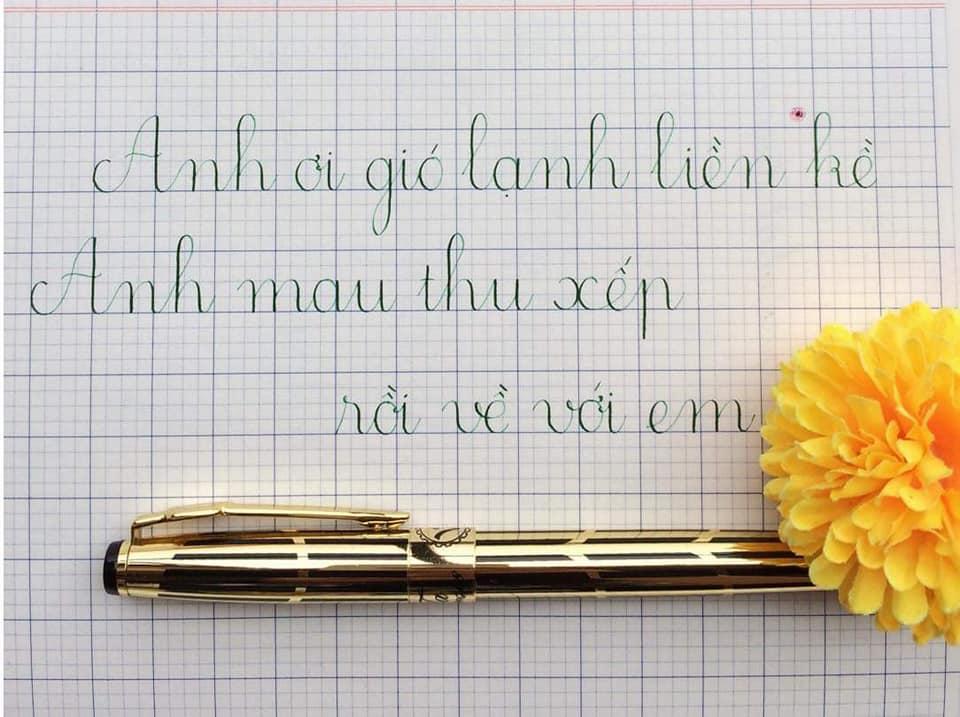 Anh ơi gió lạnh liền kề
Anh mau thu xếp
rồi về với em